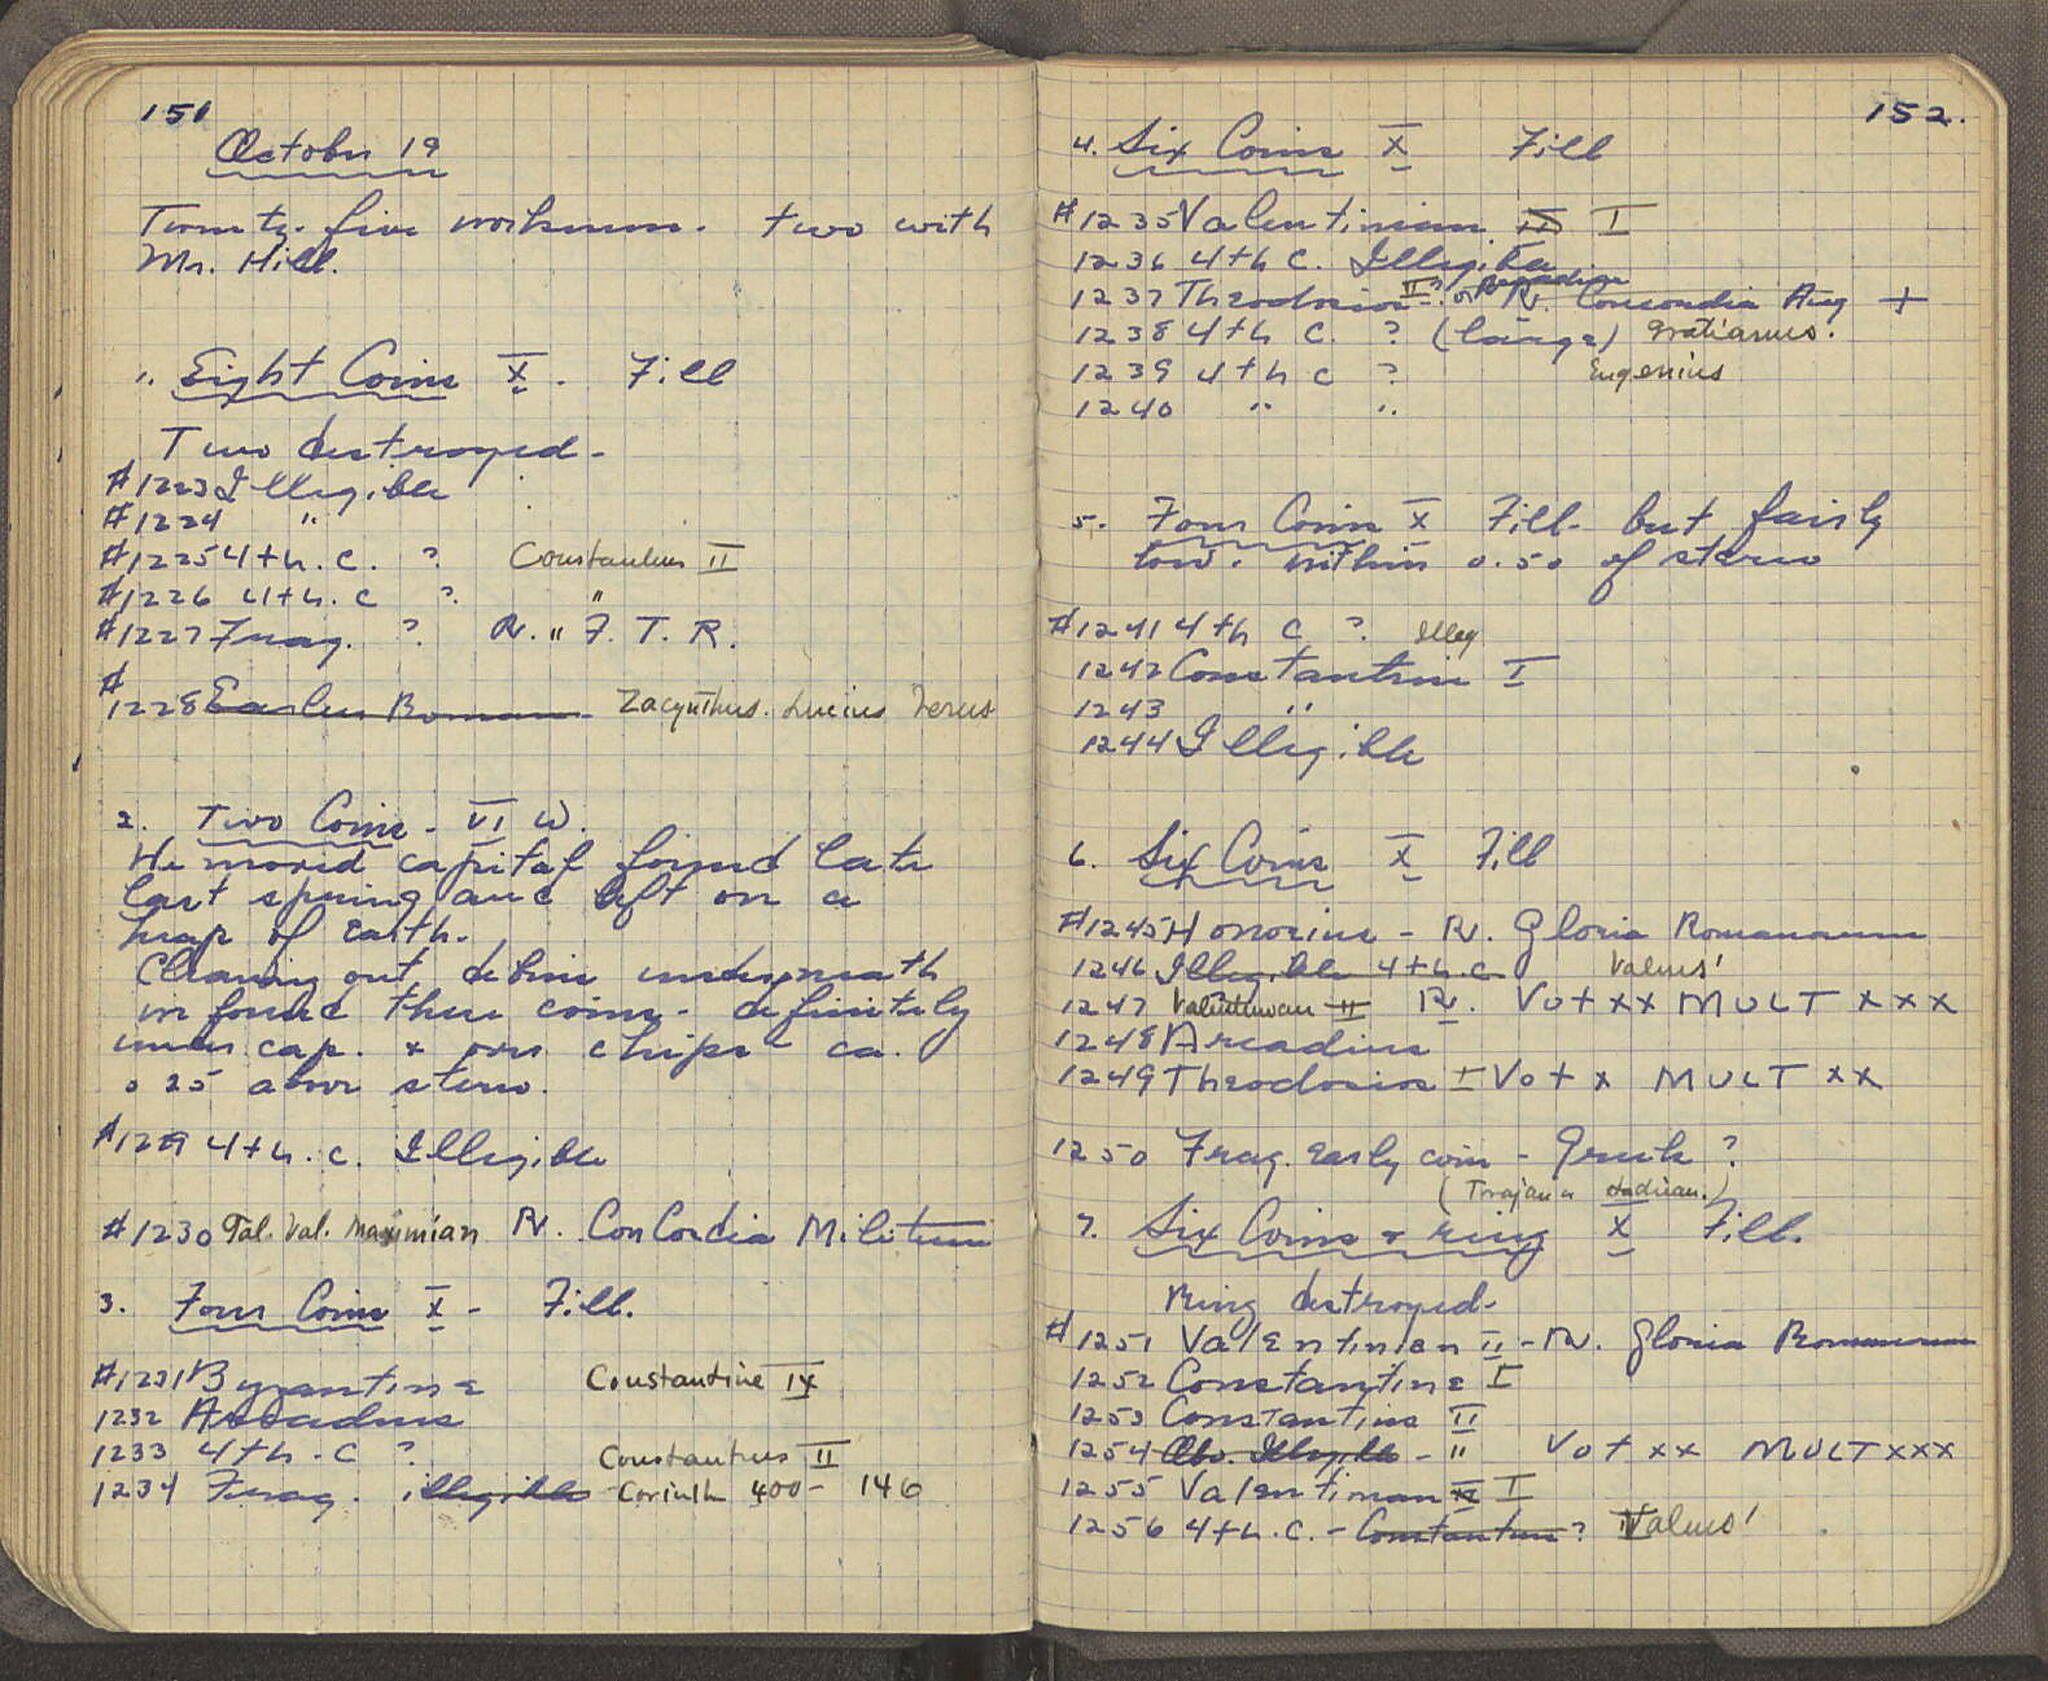 151
October 19
Twenty-five workmen. two with
Mr. Hill.
1. Eight Coins X. Fill
Two destroyed-
#1223 Illegible
#1224 "
#1225 4th. C. ? Constantius II
#1226 4th. C ? "
#1227 Frag. ? R. " F. T. R.
#1228 Earlier Roman - Zacynthus. Lucius Verus
2. Two Coins - VI W.
We moved capital found late
last spring and left on a
heap of earth.
Cleaning out debris underneath
we found these coins - definitely
under cap. + over chips ca.
0 25 above stereo.
#1229 4th. C. Illegible
#1230 Gal. Val. Maximian R. ConCordia Militum
3. Four Coins X - Fill.
#1231 Byzantine Constantine IX
1232 Arcadius
1233 4th. C ? Constantius II
1234 Frag. illegible Corinth 400- 146
152.
4. Six Coins X Fill
#1235 Valentinian I
1236 4th C. Illegible
1237 Theodosius II? or Arcadius R. Concordia Aug +
1238 4th C. ? (large) Gratianus.
1239 4th C ? Eugenius
1240 " "
5. Four Coins X Fill- but fairly
low. within 0.50 of stereo
#1241 4th C ? Illeg
1242 Constantine I
1243 "
1244 Illegible
6. Six Coins X Fill
#1245 Honorius - R. Gloria Romanorum
1246 Illegible 4th. C Valens'
1247 Valentinian II R. Vot XX MULT XXX
1248 Arcadius
1249 Theodosius I Vot X MULT XX
1250 Frag. Early coin - Greek ?
(Trajan or Hadrian.)
7. Six Coins + ring X Fill.
Ring destroyed-
#1251 Valentinian II - R. Gloria Romanorum
1252 Constantine I
1253 Constantius II
1254 Obv. Illegible - " Vot XX MULT XXX
1255 Valentinian I
1256 4th. C. - Constantius? Valens'